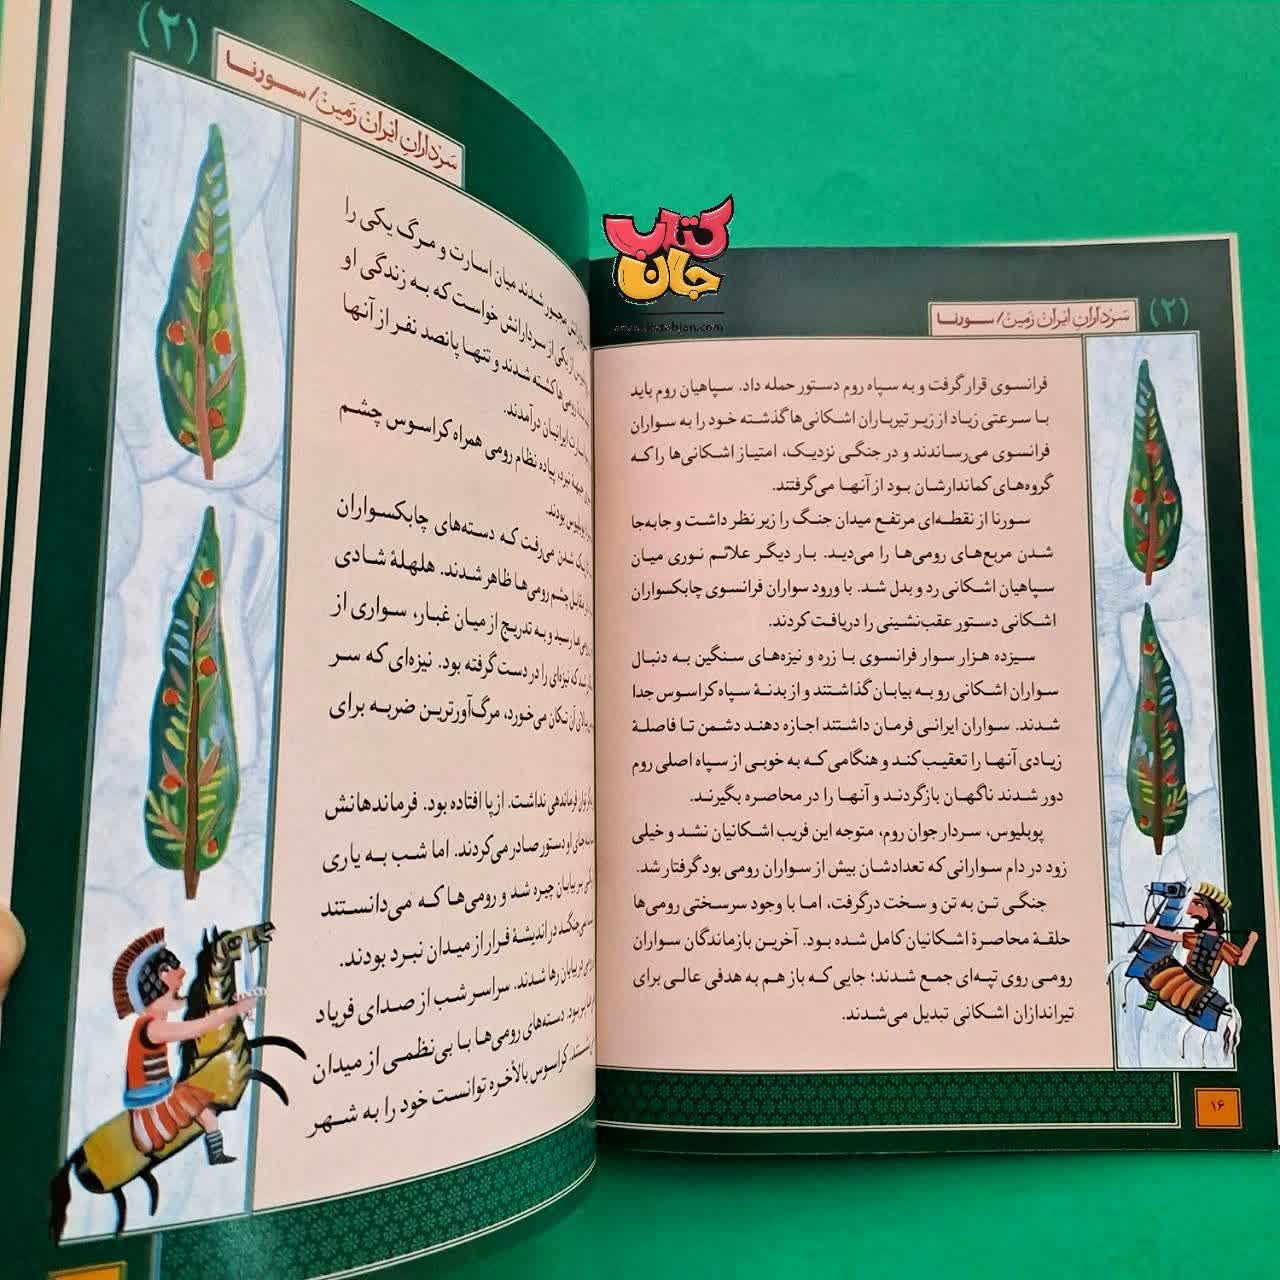 (۲)
سرداران ایران زمین/ سورنا
فرانسوی قرار گرفت و به سپاه روم دستور حمله داد. سپاهیان روم باید
با سرعتی زیاد از زیر تیرباران اشکانی‌ها گذشته خود را به سواران
فرانسوی می‌رساندند و در جنگی نزدیک، امتیاز اشکانی‌ها را که
گروه‌های کماندارشان بود از آنها می‌گرفتند.
سورنا از نقطه‌ای مرتفع میدان جنگ را زیر نظر داشت و جابه‌جا
شدن مربع‌های رومی‌ها را می‌دید. بار دیگر علائم نوری میان
سپاهیان اشکانی رد و بدل شد. با ورود سواران فرانسوی چابکسواران
اشکانی دستور عقب‌نشینی را دریافت کردند.
سیزده هزار سوار فرانسوی با زره و نیزه‌های سنگین به دنبال
سواران اشکانی رو به بیابان گذاشتند و از بدنهٔ سپاه کراسوس جدا
شدند. سواران ایرانی فرمان داشتند اجازه دهند دشمن تا فاصلهٔ
زیادی آنها را تعقیب کند و هنگامی که به خوبی از سپاه اصلی روم
دور شدند ناگهان بازگردند و آنها را در محاصره بگیرند.
پوبلیوس، سردار جوان روم، متوجه این فریب اشکانیان نشد و خیلی
زود در دام سوارانی که تعدادشان بیش از سواران رومی بود گرفتار شد.
جنگی تن به تن و سخت درگرفت، اما با وجود سرسختی رومی‌ها
حلقهٔ محاصرهٔ اشکانیان کامل شده بود. آخرین بازماندگان سواران
رومی روی تپه‌ای جمع شدند؛ جایی که باز هم به هدفی عالی برای
تیراندازان اشکانی تبدیل می‌شدند.
۱۶
(۲)
سرداران ایران زمین/ سورنا
مجبور شدند میان اسارت و مرگ یکی را
از یکی از سردارانش خواست که به زندگی او
رومی‌ها کشته شدند و تنها پانصد نفر از آنها
اسارت ایرانیان درآمدند.
جبهه نبرد، پیاده نظام رومی همراه کراسوس چشم
بودند.
شدن می‌رفت که دسته‌های چابکسواران
مقابل چشم رومی‌ها ظاهر شدند. هلهلهٔ شادی
رسید و به تدریج از میان غبار، سواری از
که نیزه‌ای را در دست گرفته بود. نیزه‌ای که سر
آن تکان می‌خورد، مرگ‌آورترین ضربه برای
فرماندهی نداشت. از پا افتاده بود. فرماندهانش
جای او دستور صادر می‌کردند. اما شب به یاری
بر بیابان چیره شد و رومی‌ها که می‌دانستند
در اندیشهٔ فرار از میدان نبرد بودند.
در بیابان رها شدند. سراسر شب از صدای فریاد
دسته‌های رومی‌ها با بی‌نظمی از میدان
کراسوس بالأخره توانست خود را به شهر
کتاب
جان